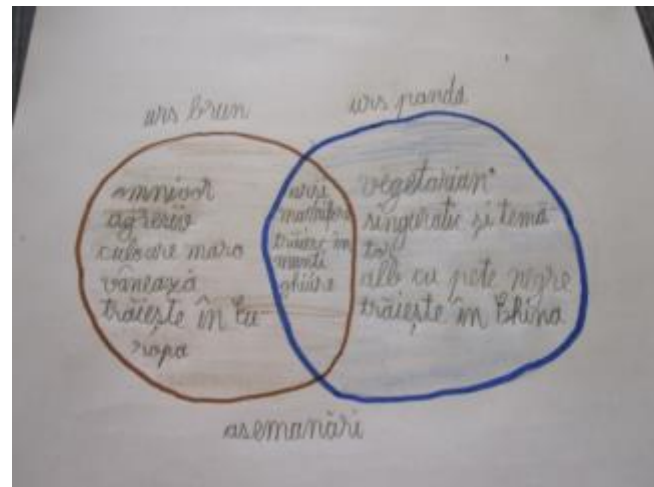 urs brun
urs panda
omnivor
agresiv
culoare maro
vânează
trăiește în Eu
ropa
urși
mamifere
trăiesc în
munți
ghiare
vegetarian
singuratic și temă
tor
alb cu pete negre
trăiește în China
asemanări